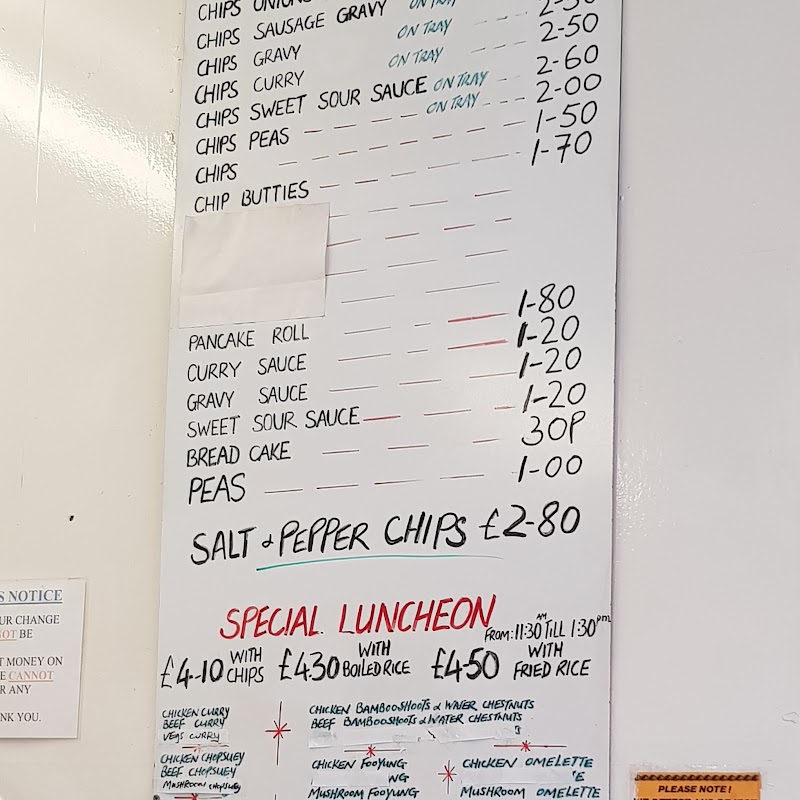 CHIPS ONIONS ON TRAY
CHIPS SAUSAGE GRAVY ON TRAY 2-50
CHIPS GRAVY ON TRAY 2-50
CHIPS CURRY ON TRAY 2-60
CHIPS SWEET SOUR SAUCE ON TRAY 2-00
CHIPS PEAS 1-50
CHIPS 1-70
CHIP BUTTIES
PANCAKE ROLL 1-80
CURRY SAUCE 1-20
GRAVY SAUCE 1-20
SWEET SOUR SAUCE 1-20
BREAD CAKE 30P
PEAS 1-00
SALT & PEPPER CHIPS £2-80
SPECIAL LUNCHEON FROM: 11:30 AM TILL 1:30 PM
£4-10 WITH CHIPS £4.30 WITH BOILED RICE £4-50 WITH FRIED RICE
CHICKEN CURRY
BEEF CURRY
VEGS CURRY
CHICKEN BAMBOOSHOOTS & WATER CHESTNUTS
BEEF BAMBOOSHOOTS & WATER CHESTNUTS
CHICKEN CHOPSUEY
BEEF CHOPSUEY
MUSHROOM CHOPSUEY
CHICKEN FOOYUNG
NG
MUSHROOM FOOYUNG
CHICKEN OMELETTE
E
MUSHROOM OMELETTE
S NOTICE
UR CHANGE
NOT BE
T MONEY ON
E CANNOT
R ANY
NK YOU.
PLEASE NOTE!